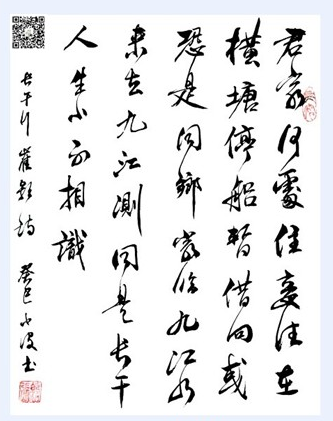 君家何處住妾住在
橫塘停船暫借問或
恐是同鄉家臨九江水
来去九江測同是長干
人生小不相識
長干行崔顥詩 癸巳